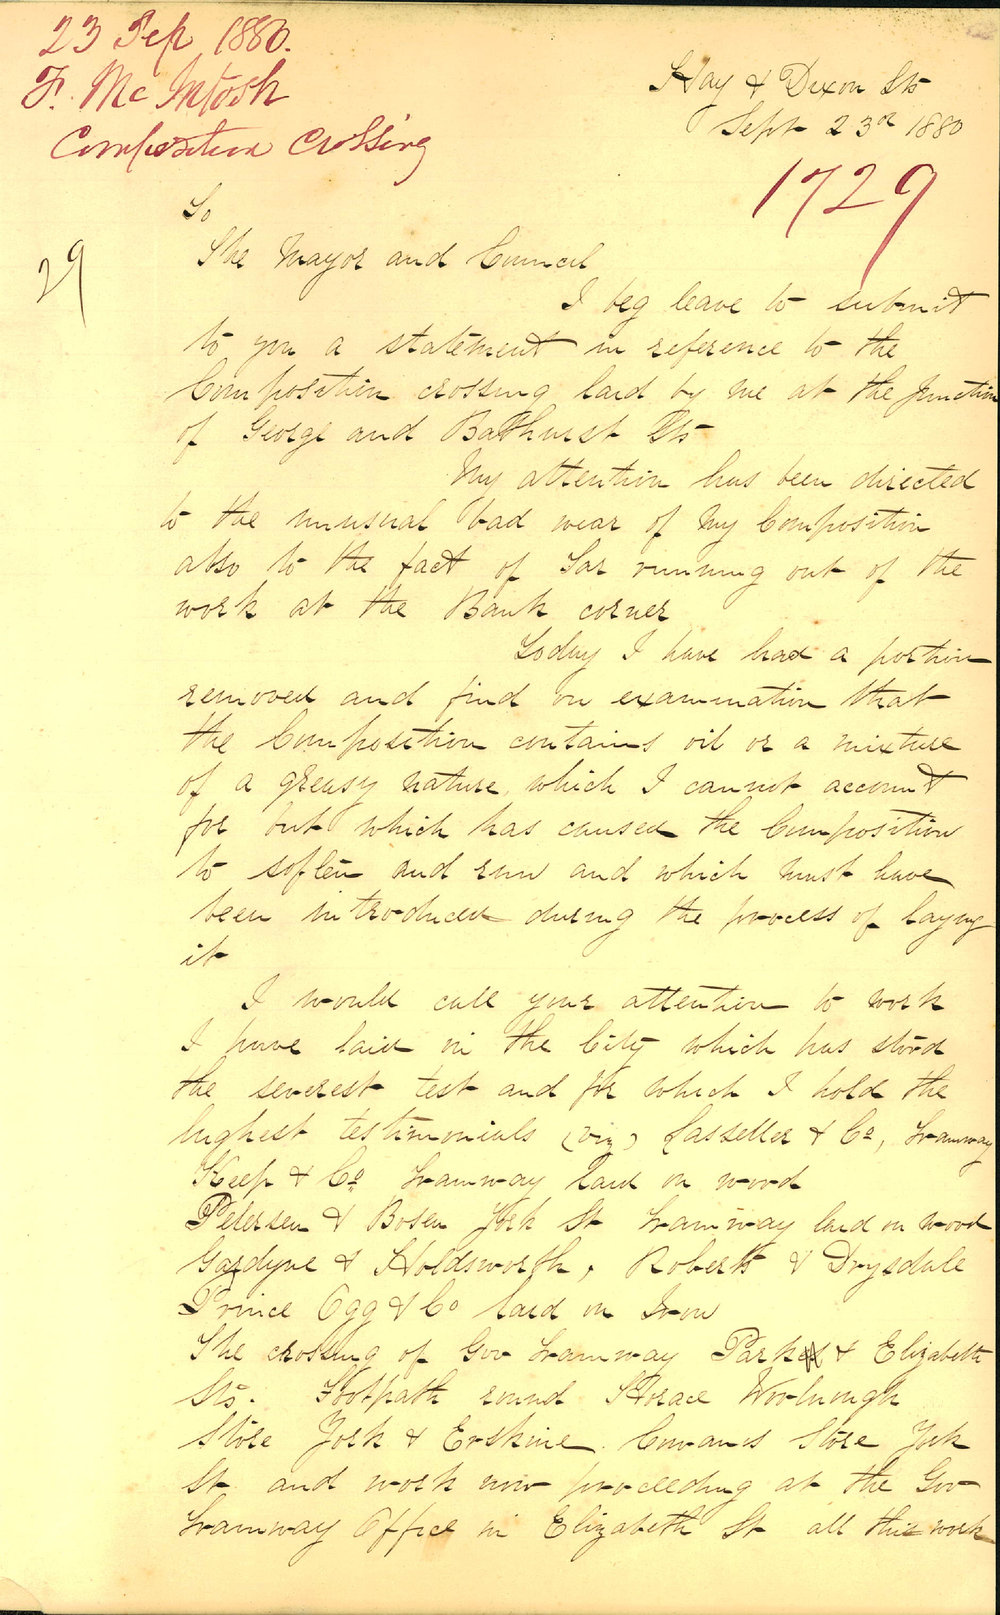 23 Sep 1880.
F. McIntosh
Composition Crossing
Hay & Dixon Sts
Sept 23rd 1880
1729
29
To
The Mayor and Council
I beg leave to submit
to you a statement in reference to the
Composition crossing laid by me at the junction
of George and Bathurst Sts
My attention has been directed
to the unusual bad wear of my Composition
also to the fact of Tar running out of the
work at the Bank corner
Today I have had a portion
removed and find on examination that
the Composition contains oil or a mixture
of a greasy nature which I cannot account
for but which has caused the Composition
to soften and run and which must have
been introduced during the process of laying
it
I would call your attention to work
I have laid in the City which has stood
the severest test and for which I hold the
highest testimonials (viz) Lassetter & Co, Tramway
Keep & Co Tramway laid on wood
Petersen & Bosen York St Tramway laid on wood
Gardyne & Holdsworth, Roberts & Drysdale
Prince Ogg & Co laid on Iron
The crossing of Gov Tramway Park & Elizabeth
Sts. Footpath round Horace Woolnough
Store York & Erskine. Cowans Store York
St and work now proceeding at the Gov
Tramway Office in Elizabeth St all this work